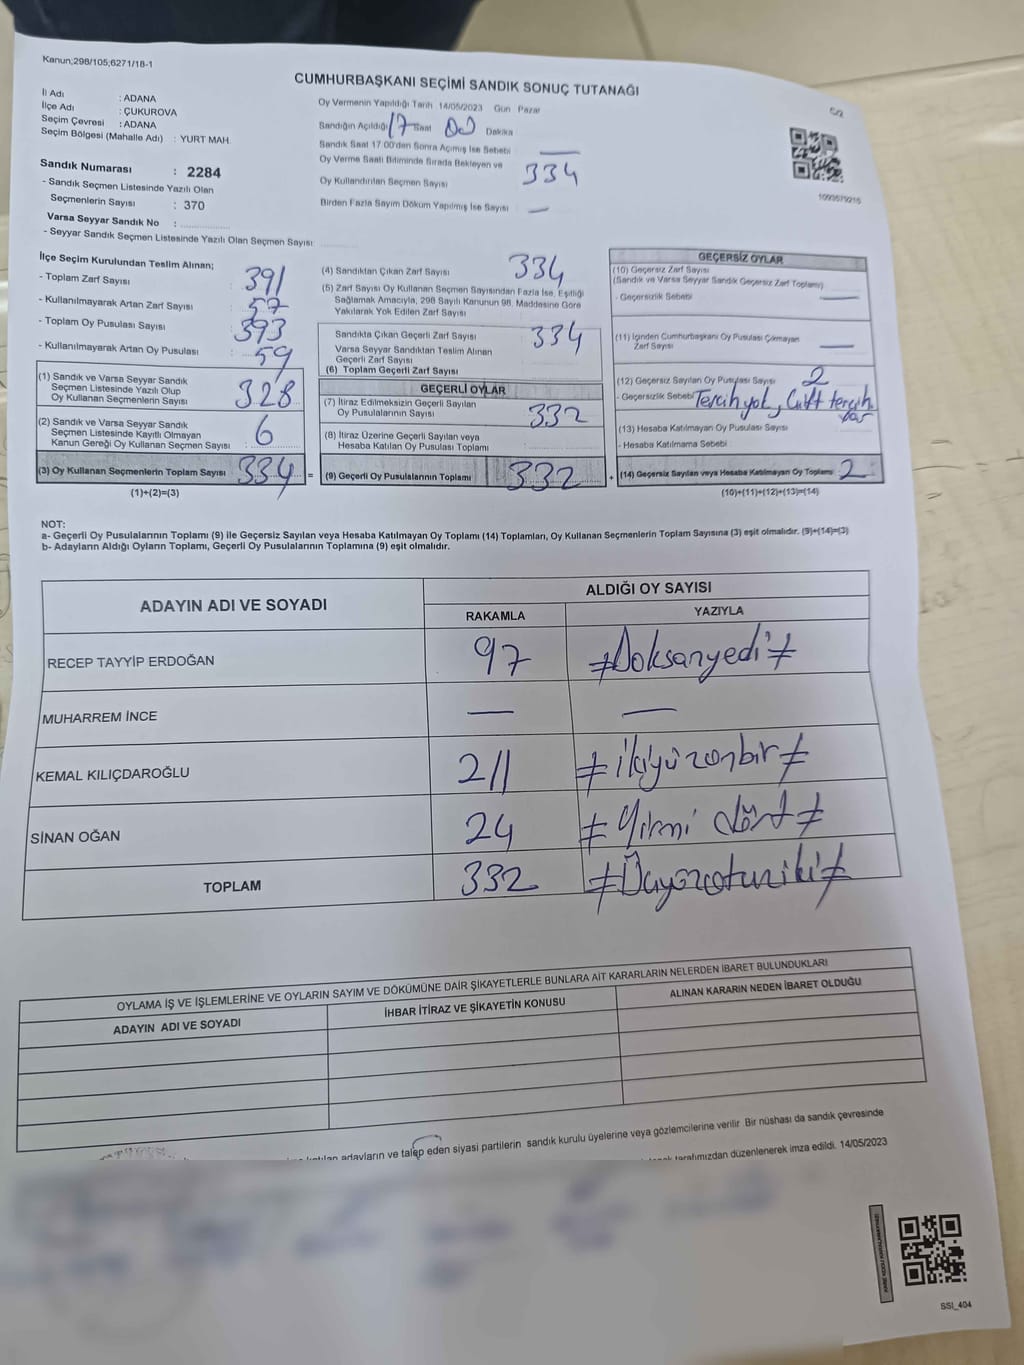 Kanun;298/105;6271/18-1
CUMHURBAŞKANI SEÇİMİ SANDIK SONUÇ TUTANAĞI
İl Adı : ADANA
İlçe Adı : ÇUKUROVA
Seçim Çevresi : ADANA
Seçim Bölgesi (Mahalle Adı) : YURT MAH.
Oy Vermenin Yapıldığı Tarih 14/05/2023 Gün Pazar
Sandığın Açıldığı 17 Saat 00 Dakika
Sandık Saat 17:00'den Sonra Açmış İse Sebebi —
Oy Verme Saati Bitiminde Sırada Bekleyen ve
Oy Kullandırılan Seçmen Sayısı 334
Birden Fazla Sayım Döküm Yapılmış İse Sayısı —
Sandık Numarası : 2284
- Sandık Seçmen Listesinde Yazılı Olan
Seçmenlerin Sayısı : 370
Varsa Seyyar Sandık No :
- Seyyar Sandık Seçmen Listesinde Yazılı Olan Seçmen Sayısı:
İlçe Seçim Kurulundan Teslim Alınan;
- Toplam Zarf Sayısı : 391
- Kullanılmayarak Artan Zarf Sayısı : 57
- Toplam Oy Pusulası Sayısı : 393
- Kullanılmayarak Artan Oy Pusulası : 59
(1) Sandık ve Varsa Seyyar Sandık
Seçmen Listesinde Yazılı Olup
Oy Kullanan Seçmenlerin Sayısı 328
(2) Sandık ve Varsa Seyyar Sandık
Seçmen Listesinde Kayıtlı Olmayan
Kanun Gereği Oy Kullanan Seçmen Sayısı 6
(3) Oy Kullanan Seçmenlerin Toplam Sayısı 334 =
(1)+(2)=(3)
(4) Sandıktan Çıkan Zarf Sayısı 334
(5) Zarf Sayısı Oy Kullanan Seçmen Sayısından Fazla İse, Eşitliği
Sağlamak Amacıyla, 298 Sayılı Kanunun 98. Maddesine Göre
Yakılarak Yok Edilen Zarf Sayısı
Sandıkta Çıkan Geçerli Zarf Sayısı 334
Varsa Seyyar Sandıktan Teslim Alınan
Geçerli Zarf Sayısı
(6) Toplam Geçerli Zarf Sayısı
GEÇERLİ OYLAR
(7) İtiraz Edilmeksizin Geçerli Sayılan
Oy Pusulalarının Sayısı 332
(8) İtiraz Üzerine Geçerli Sayılan veya
Hesaba Katılan Oy Pusulası Toplamı
(9) Geçerli Oy Pusulalarının Toplamı 332 +
1093579215
GEÇERSİZ OYLAR
(10) Geçersiz Zarf Sayısı
(Sandık ve Varsa Seyyar Sandık Geçersiz Zarf Toplamı)
- Geçersizlik Sebebi —
(11) İçinden Cumhurbaşkanı Oy Pusulası Çıkmayan
Zarf Sayısı —
(12) Geçersiz Sayılan Oy Pusulası Sayısı 2
- Geçersizlik Sebebi Tercih yok, Çift tercih
var
(13) Hesaba Katılmayan Oy Pusulası Sayısı
- Hesaba Katılmama Sebebi
(14) Geçersiz Sayılan veya Hesaba Katılmayan Oy Toplamı 2
(10)+(11)+(12)+(13)=(14)
NOT:
a- Geçerli Oy Pusulalarının Toplamı (9) ile Geçersiz Sayılan veya Hesaba Katılmayan Oy Toplamı (14) Toplamları, Oy Kullanan Seçmenlerin Toplam Sayısına (3) eşit olmalıdır. (9)+(14)=(3)
b- Adayların Aldığı Oyların Toplamı, Geçerli Oy Pusulalarının Toplamına (9) eşit olmalıdır.
ADAYIN ADI VE SOYADI
ALDIĞI OY SAYISI
RAKAMLA YAZIYLA
RECEP TAYYİP ERDOĞAN 97 ≠Doksanyedi≠
MUHARREM İNCE — —
KEMAL KILIÇDAROĞLU 211 ≠ikiyüzonbir≠
SİNAN OĞAN 24 ≠Yirmi dört≠
TOPLAM 332 ≠Üçyüzotuziki≠
OYLAMA İŞ VE İŞLEMLERİNE VE OYLARIN SAYIM VE DÖKÜMÜNE DAİR ŞİKAYETLERLE BUNLARA AİT KARARLARIN NELERDEN İBARET BULUNDUKLARI
ADAYIN ADI VE SOYADI İHBAR İTİRAZ VE ŞİKAYETİN KONUSU ALINAN KARARIN NEDEN İBARET OLDUĞU
adayların ve talep eden siyasi partilerin sandık kurulu üyelerine veya gözlemcilerine verilir. Bir nüshası da sandık çevresinde
tarafımızdan düzenlenerek imza edildi. 14/05/2023
SSI_404